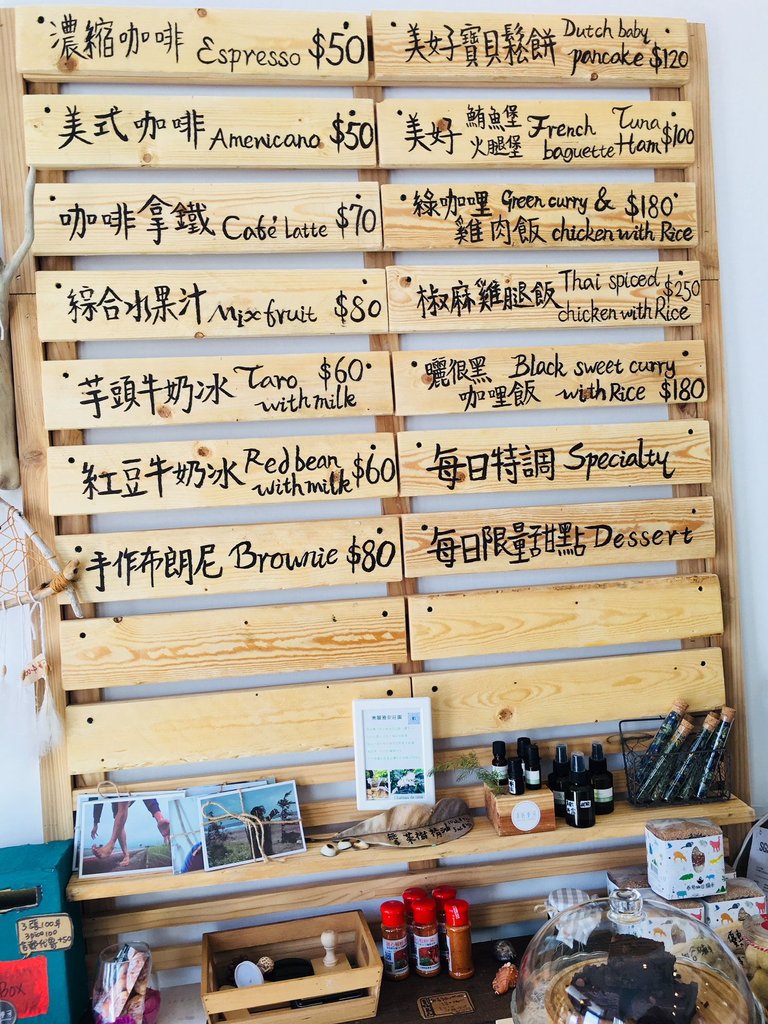 濃縮咖啡 Espresso $50
美式咖啡 Americano $50
咖啡拿鐵 Café Latte $70
綜合水果汁 Mixfruit $80
芋頭牛奶冰 Taro with milk $60
紅豆牛奶冰 Redbean with milk $60
手作布朗尼 Brownie $80
美好寶貝鬆餅 Dutch baby pancake $120
美好 鮪魚堡 火腿堡 French baguette Tuna Ham $100
綠咖哩雞肉飯 Green curry & chicken with Rice $180
椒麻雞腿飯 Thai spiced chicken with Rice $250
曬很黑咖哩飯 Black sweet curry with Rice $180
每日特調 Specialty
每日限量甜點 Dessert
3張100元
Box